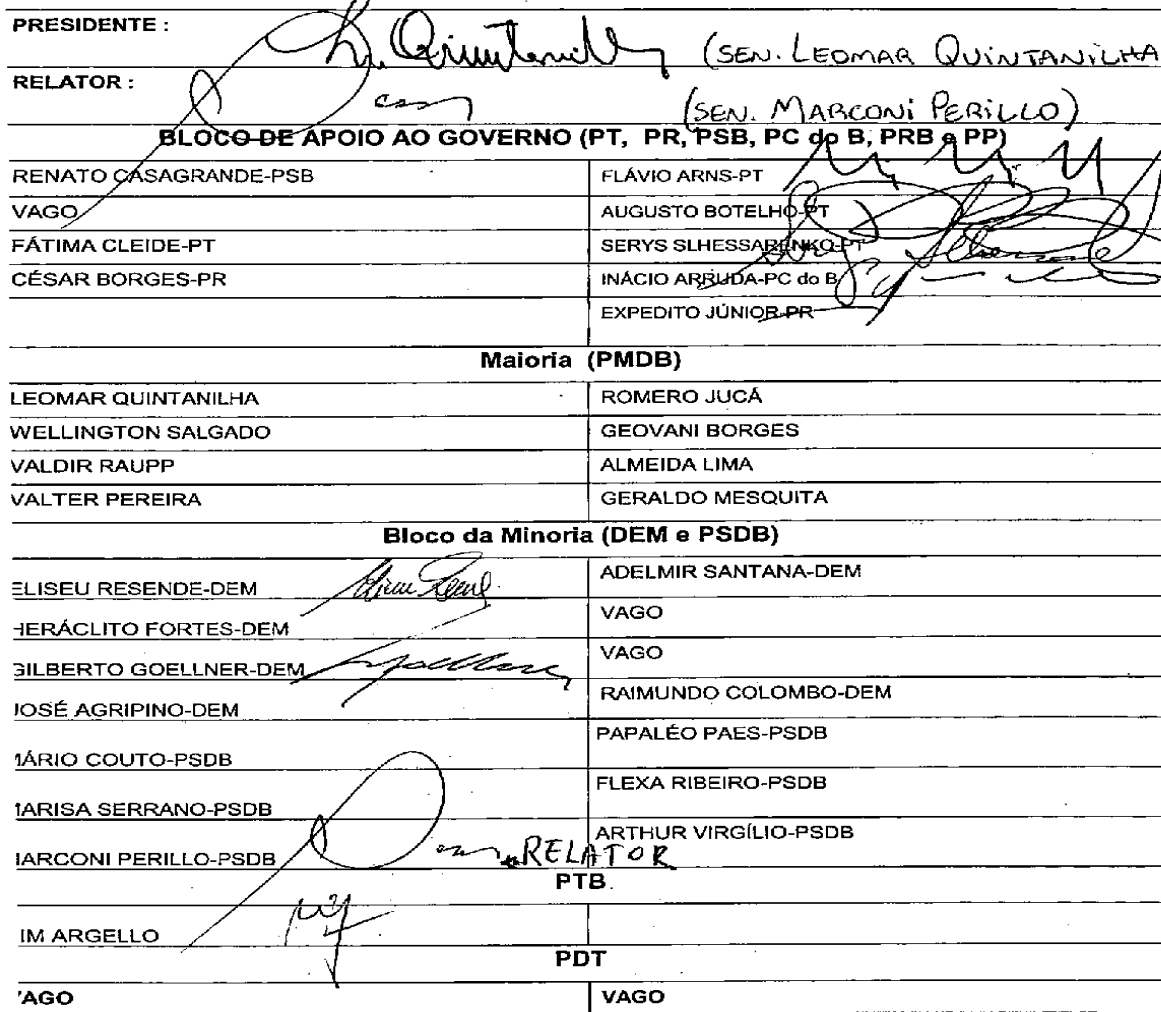 PRESIDENTE : L. Quintanilha (SEN. LEOMAR QUINTANILHA
RELATOR : (SEN. MARCONI PERILLO)
BLOCO DE APOIO AO GOVERNO (PT, PR, PSB, PC do B, PRB e PP)
RENATO CASAGRANDE-PSB FLÁVIO ARNS-PT
VAGO AUGUSTO BOTELHO-PT
FÁTIMA CLEIDE-PT SERYS SLHESSARENKO-PT
CÉSAR BORGES-PR INÁCIO ARRUDA-PC do B
EXPEDITO JÚNIOR-PR
Maioria (PMDB)
LEOMAR QUINTANILHA ROMERO JUCÁ
WELLINGTON SALGADO GEOVANI BORGES
VALDIR RAUPP ALMEIDA LIMA
VALTER PEREIRA GERALDO MESQUITA
Bloco da Minoria (DEM e PSDB)
ELISEU RESENDE-DEM ADELMIR SANTANA-DEM
HERÁCLITO FORTES-DEM VAGO
GILBERTO GOELLNER-DEM VAGO
JOSÉ AGRIPINO-DEM RAIMUNDO COLOMBO-DEM
MÁRIO COUTO-PSDB PAPALÉO PAES-PSDB
MARISA SERRANO-PSDB FLEXA RIBEIRO-PSDB
MARCONI PERILLO-PSDB RELATOR ARTHUR VIRGÍLIO-PSDB
PTB
IM ARGELLO
PDT
VAGO VAGO